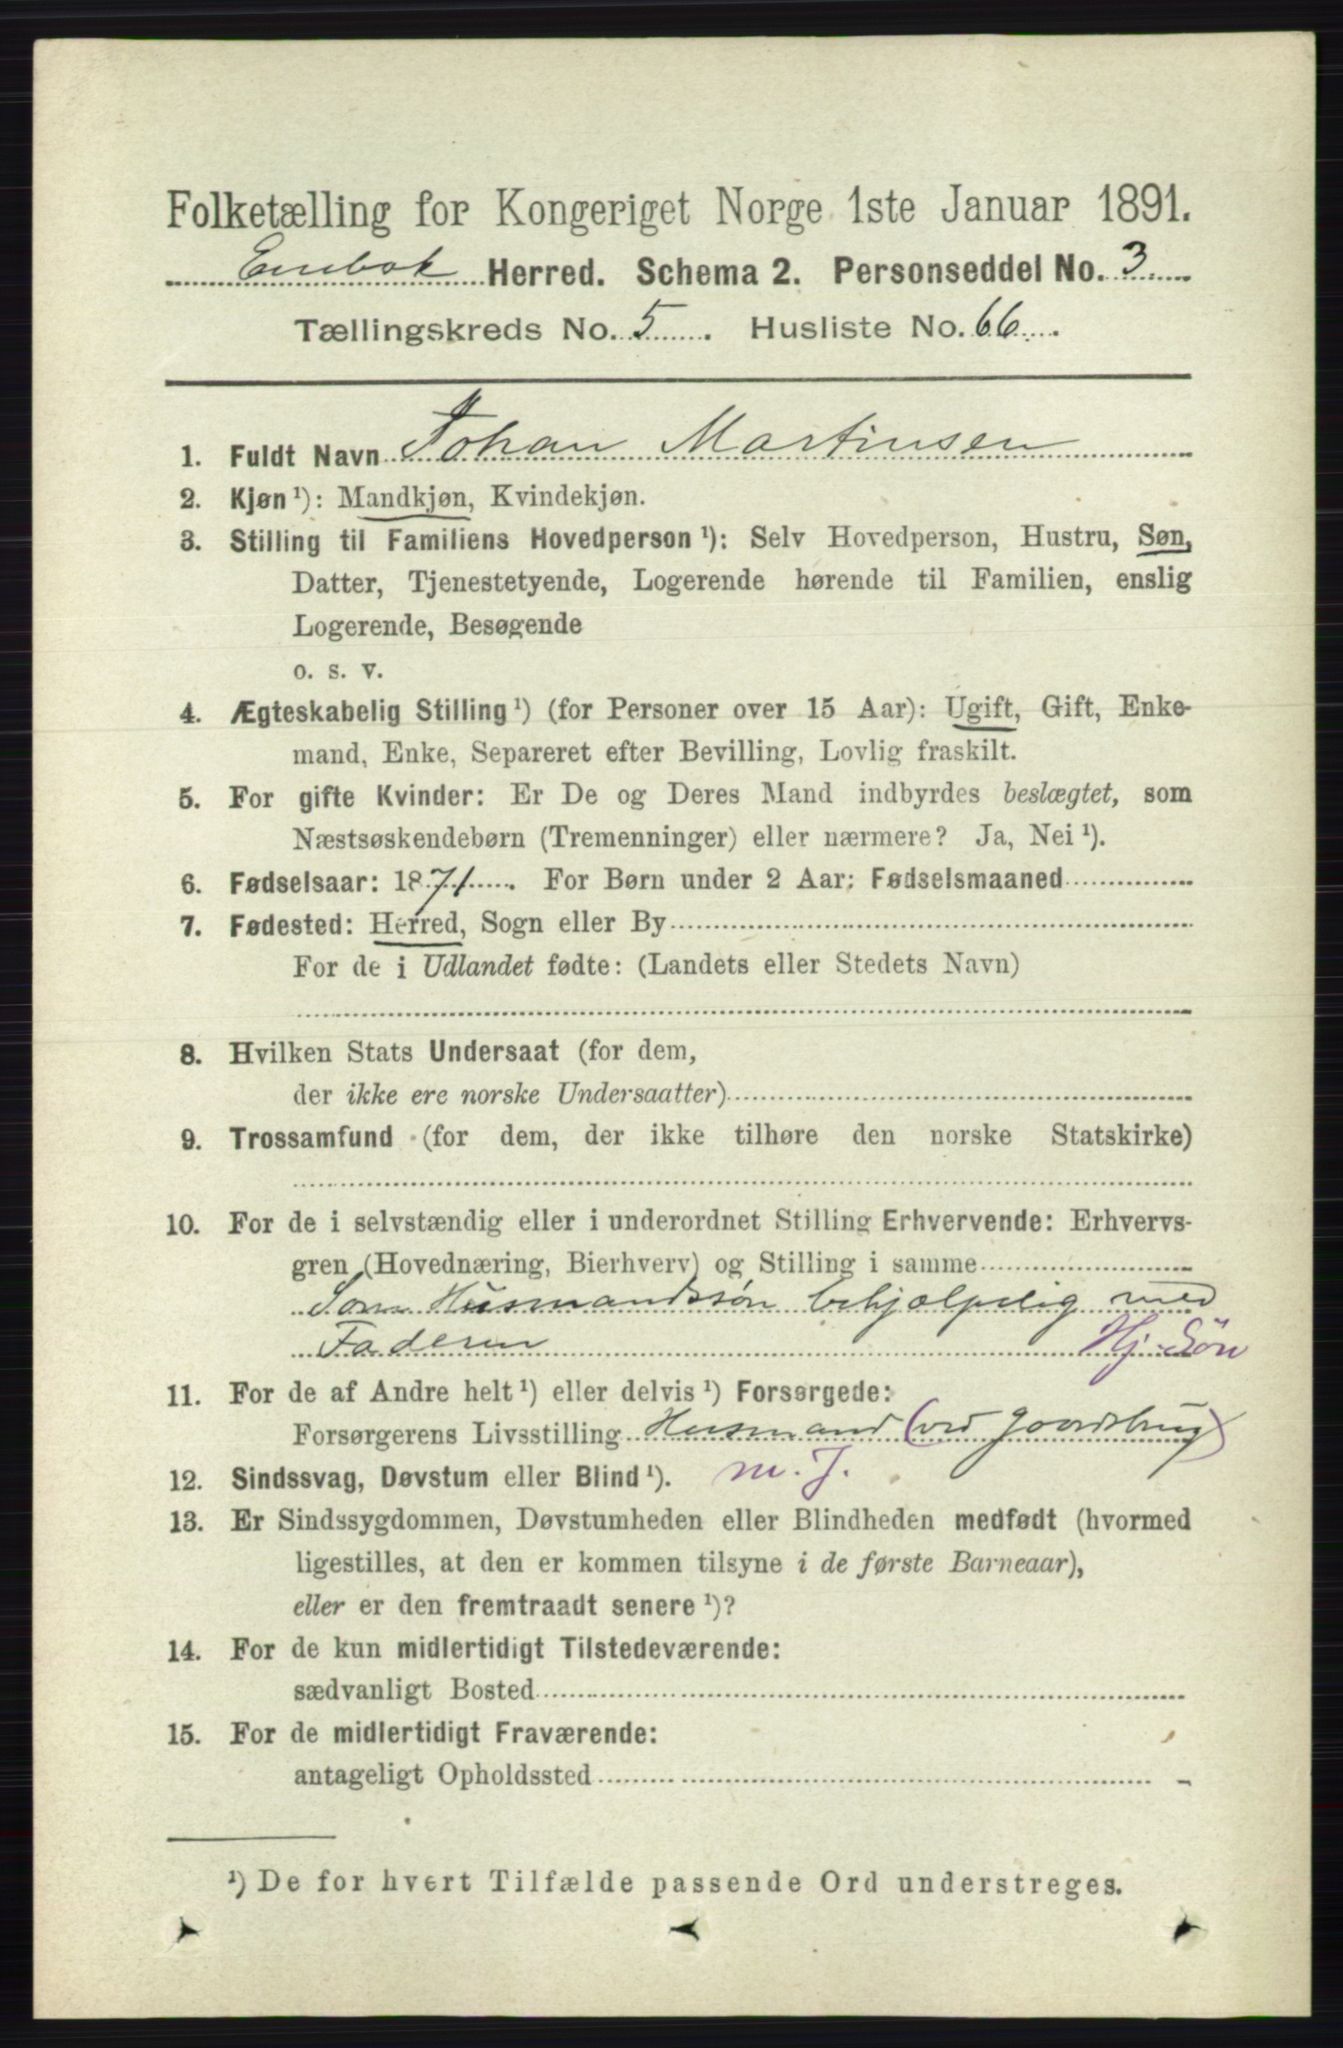 Folketælling for Kongeriget Norge 1ste Januar 1891.
Enebak Herred. Schema 2. Personseddel No. 3
Tællingskreds No. 5. Husliste No. 66.
1. Fuldt Navn Johan Martinsen
2. Kjøn ¹): Mandkjøn, Kvindekjøn.
3. Stilling til Familiens Hovedperson ¹): Selv Hovedperson, Hustru, Søn,
Datter, Tjenestetyende, Logerende hørende til Familien, enslig
Logerende, Besøgende
o. s. v.
4. Ægteskabelig Stilling ¹) (for Personer over 15 Aar): Ugift, Gift, Enke-
mand, Enke, Separeret efter Bevilling, Lovlig fraskilt.
5. For gifte Kvinder: Er De og Deres Mand indbyrdes beslægtet, som
Næstsøskendebørn (Tremenninger) eller nærmere? Ja, Nei ¹).
6. Fødselsaar: 1871. For Børn under 2 Aar: Fødselsmaaned
7. Fødested: Herred, Sogn eller By
For de i Udlandet fødte: (Landets eller Stedets Navn)
8. Hvilken Stats Undersaat (for dem,
der ikke ere norske Undersaatter)
9. Trossamfund (for dem, der ikke tilhøre den norske Statskirke)
10. For de i selvstændig eller i underordnet Stilling Erhvervende: Erhvervs-
gren (Hovednæring, Bierhverv) og Stilling i samme
Som Husmandssøn behjælpelig med
Faderen Hj. Søn
11. For de af Andre helt ¹) eller delvis ¹) Forsørgede:
Forsørgerens Livsstilling Husmand (ved gaardsbrug)
12. Sindssvag, Døvstum eller Blind ¹). m. J.
13. Er Sindssygdommen, Døvstumheden eller Blindheden medfødt (hvormed
ligestilles, at den er kommen tilsyne i de første Barneaar),
eller er den fremtraadt senere ¹)?
14. For de kun midlertidigt Tilstedeværende:
sædvanligt Bosted
15. For de midlertidigt Fraværende:
antageligt Opholdssted
¹) De for hvert Tilfælde passende Ord understreges.